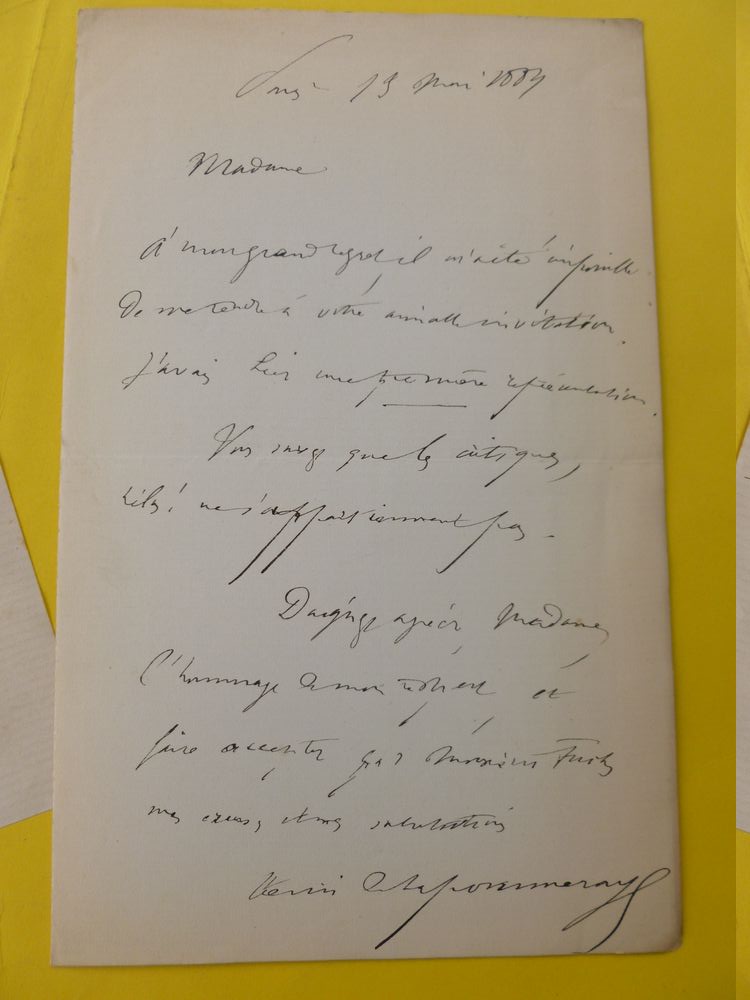 13 mai 1884
Madame
A mon grand regret, il m'a été impossible
de me rendre à votre aimable invitation.
J'avais hier une première représentation.
Vous savez que les critiques,
hélas ! ne s'appartiennent pas.
Daignez agréer, Madame,
l'hommage de mon respect et
faire accepter par Monsieur
mes excuses et mes salutations
Henri de Lapommeraye